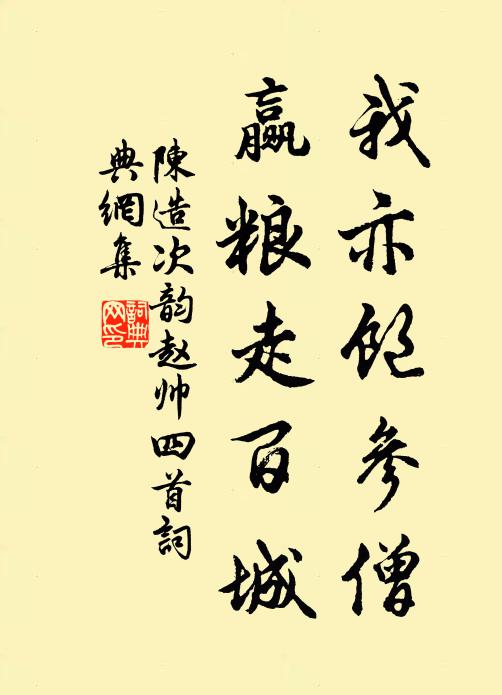 我亦飽參僧
贏粮走百城
陳造次韵赵帅四首詞
典網集
詞典
网印